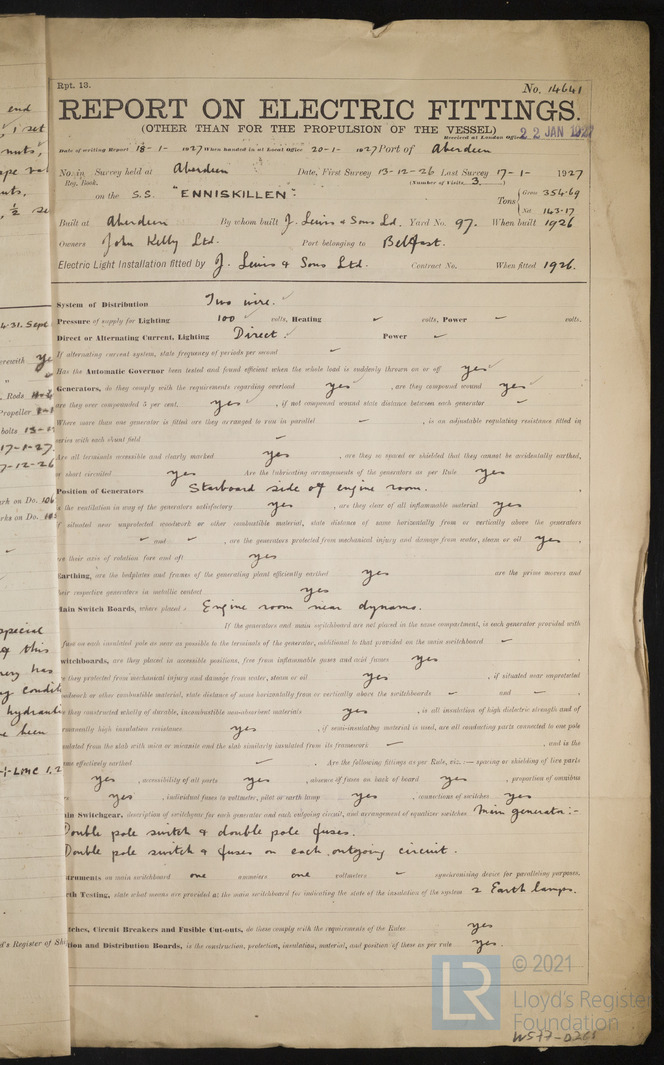 Rpt. 13.
No. 14641
REPORT ON ELECTRIC FITTINGS.
(OTHER THAN FOR THE PROPULSION OF THE VESSEL)
Received at London Office 22 JAN 1927
Date of writing Report 18-1-1927 When handed in at Local Office 20-1-1927 Port of Aberdeen
No. in Survey held at Aberdeen Date, First Survey 13-12-26 Last Survey 17-1-1927
Reg. Book. (Number of Visits 3)
on the S.S. "ENNISKILLEN" Tons { Gross 354.69
Net 143.17
Built at Aberdeen By whom built J. Lewis & Sons Ld. Yard No. 97. When built 1926
Owners John Kelly Ltd. Port belonging to Belfast.
Electric Light Installation fitted by J. Lewis & Sons Ltd. Contract No. When fitted 1926.
System of Distribution Two wire. ✓
Pressure of supply for Lighting 100 ✓ volts, Heating ✓ volts, Power ✓ volts.
Direct or Alternating Current, Lighting Direct ✓ Power ✓
If alternating current system, state frequency of periods per second ✓
Has the Automatic Governor been tested and found efficient when the whole load is suddenly thrown on or off yes
Generators, do they comply with the requirements regarding overload yes, are they compound wound yes
are they over compounded 5 per cent. yes, if not compound wound state distance between each generator ✓
Where more than one generator is fitted are they arranged to run in parallel ✓, is an adjustable regulating resistance fitted in
series with each shunt field ✓
Are all terminals accessible and clearly marked yes, are they so spaced or shielded that they cannot be accidentally earthed,
or short circuited yes Are the lubricating arrangements of the generators as per Rule yes
Position of Generators Starboard side of engine room.
is the ventilation in way of the generators satisfactory yes, are they clear of all inflammable material yes
if situated near unprotected woodwork or other combustible material, state distance of same horizontally from or vertically above the generators
✓ and ✓, are the generators protected from mechanical injury and damage from water, steam or oil yes,
are their axis of rotation fore and aft yes
Earthing, are the bedplates and frames of the generating plant efficiently earthed yes are the prime movers and
their respective generators in metallic contact yes
Main Switch Boards, where placed Engine room near dynamo.
If the generators and main switchboard are not placed in the same compartment, is each generator provided with
fuse on each insulated pole as near as possible to the terminals of the generator, additional to that provided on the main switchboard ✓
Switchboards, are they placed in accessible positions, free from inflammable gases and acid fumes yes,
are they protected from mechanical injury and damage from water, steam or oil yes, if situated near unprotected
woodwork or other combustible material, state distance of same horizontally from or vertically above the switchboards ✓ and ✓,
are they constructed wholly of durable, incombustible non-absorbent materials yes, is all insulation of high dielectric strength and of
permanently high insulation resistance yes, if semi-insulating material is used, are all conducting parts connected to one pole
insulated from the slab with mica or micanite and the slab similarly insulated from its framework ✓, and is the
frame effectively earthed ✓. Are the following fittings as per Rule, viz.:— spacing or shielding of live parts
yes, accessibility of all parts yes, absence of fuses on back of board yes, proportion of omnibus
yes, individual fuses to voltmeter, pilot or earth lamp yes, connections of switches yes
Main Switchgear, description of switchgear for each generator and each outgoing circuit, and arrangement of equalizer switches Main generator:-
Double pole switch & double pole fuses.
Double pole switch & fuses on each outgoing circuit.
Instruments on main switchboard one ammeters one voltmeters ✓ synchronising device for paralleling purposes.
Earth Testing, state what means are provided at the main switchboard for indicating the state of the insulation of the system 2 Earth lamps.
Switches, Circuit Breakers and Fusible Cut-outs, do these comply with the requirements of the Rules yes
Section and Distribution Boards, is the construction, protection, insulation, material, and position of these as per rule yes.
LR
© 2021
Lloyd's Register
Foundation
W577-0265